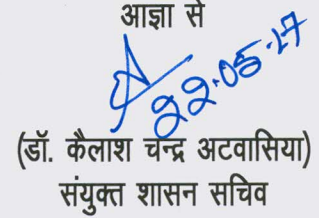 आज्ञा से
22.05.17
(डॉ. कैलाश चन्द्र अटवासिया)
संयुक्त शासन सचिव